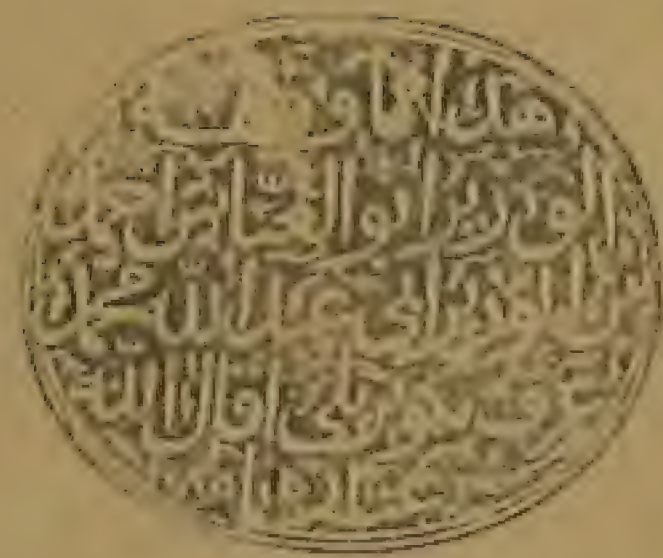 هذا ما وقف
الوزير ابو العباس احمد
بن الوزير ابي عبد الله محمد
عرف بكوپريلى اقال الله
عثارهما